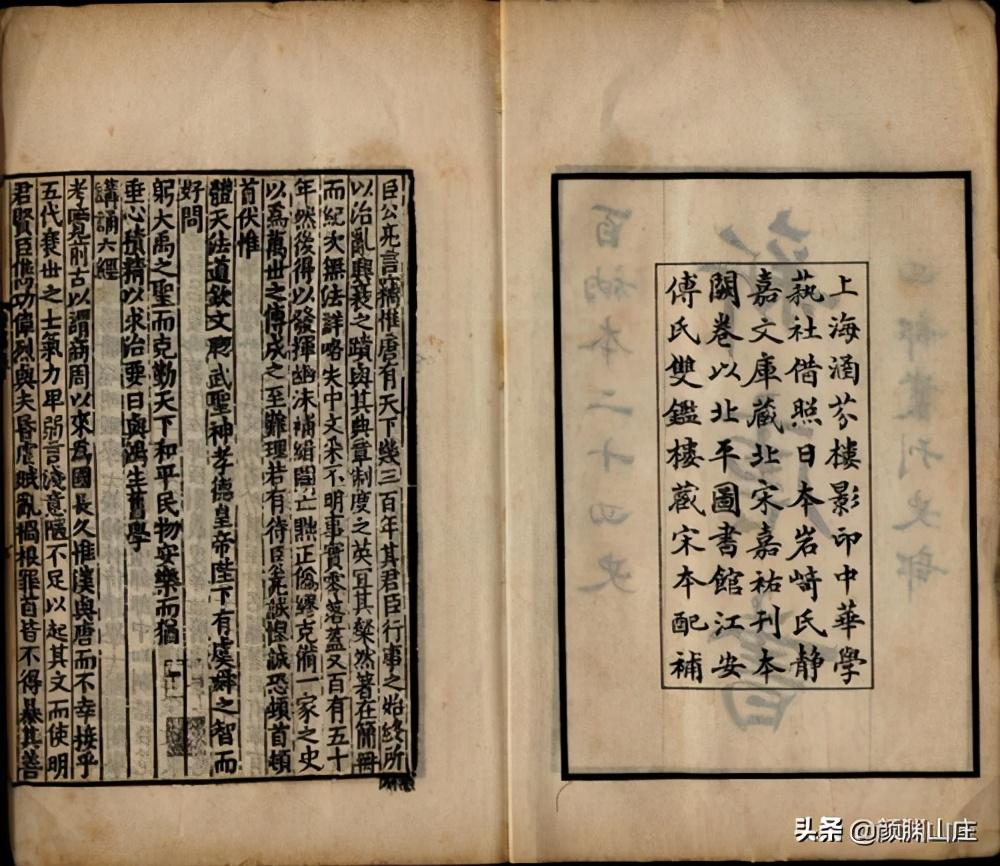 上海涵芬樓影印中華學
蓺社借照日本岩崎氏静
嘉文庫藏北宋嘉祐刊本
闕卷以北平圖書館江安
傅氏雙鑑樓藏宋本配補
臣公亮言竊惟唐有天下幾三百年其君臣行事之始終所
以治亂興衰之蹟與其典章制度之英宜其粲然著在簡冊
而紀次無法詳略失中文采不明事實零落蓋又百有五十
年然後得以發揮幽沬補緝闕亡黜正偽繆克備一家之史
以爲萬世之傳成之至難理若有待臣公亮誠惶誠恐頓首頓
首伏惟
體天法道欽文聦武聖神孝德皇帝陛下有虞舜之智而
好問
躬大禹之聖而克勤天下和平民物安樂而猶
垂心積精以求治要日與鴻生舊學
講誦六經
考覽前古以謂商周以來爲國長久惟漢與唐而不幸接乎
五代衰世之士氣力卑弱言淺意陋不足以起其文而使明
君賢臣儁功偉烈與夫昏虐賊亂禍根罪首皆不得暴其善
头条 @颜渊山庄